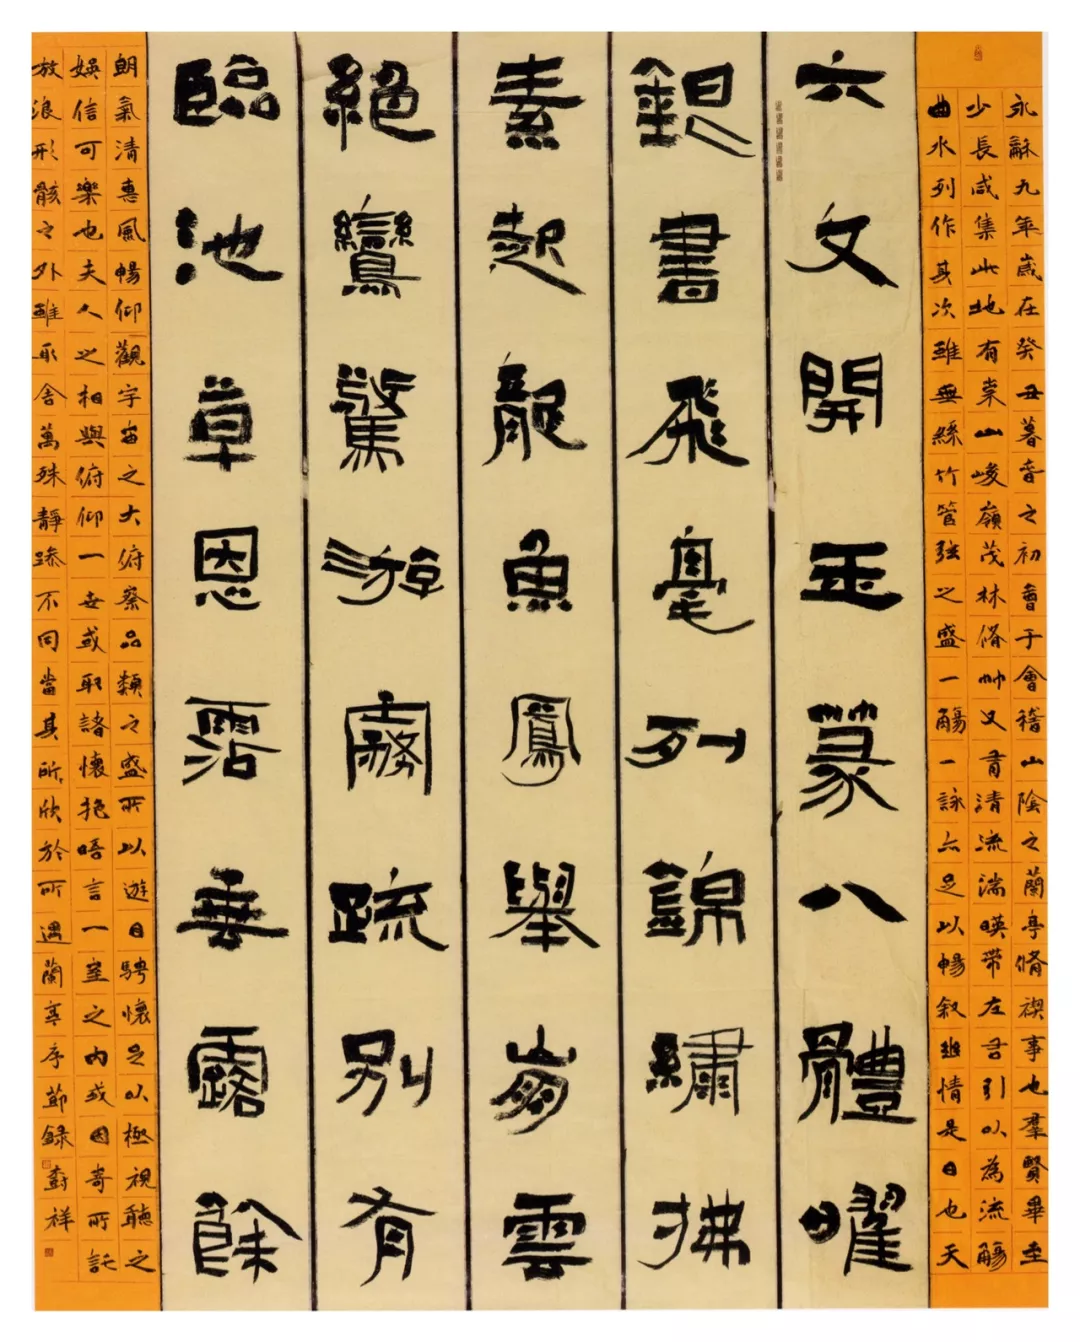 永龢九年歲在癸丑暮春之初會于會稽山陰之蘭亭脩禊事也羣賢畢至
少長咸集此地有崇山峻嶺茂林脩竹又有清流湍暎帶左右引以為流觴
曲水列作其次雖無絲竹管弦之盛一觴一詠亦足以暢敘幽情是日也天
六文開玉篆八體曜
銀書飛毫列錦繡拂
素起龍魚鳳舉崩雲
絕鸞驚游霧疏別有
臨池草恩霑垂露餘
朗氣清惠風暢仰觀宇宙之大俯察品類之盛所以遊目騁懷足以極視聽之
娛信可樂也夫人之相與俯仰一世或取諸懷抱晤言一室之內或因寄所託
放浪形骸之外雖取舍萬殊靜躁不同當其所欣於所遇蘭亭序節錄祥